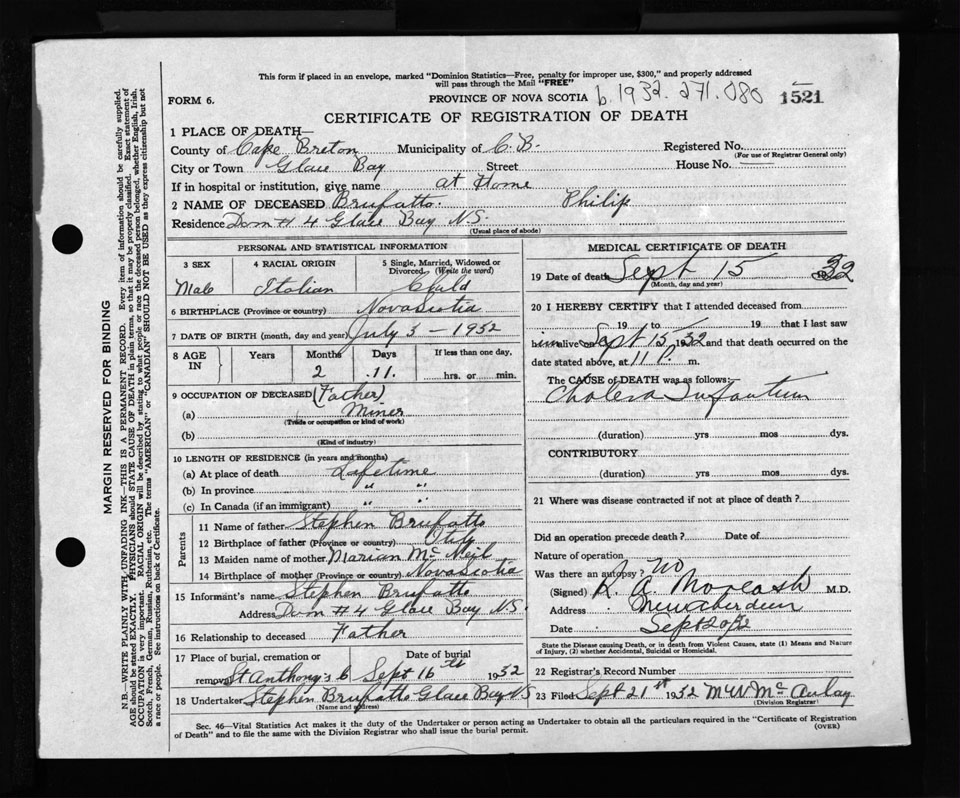 This form if placed in an envelope, marked "Dominion Statistics—Free, penalty for improper use, $300," and properly addressed
will pass through the Mail "FREE"
FORM 6.
PROVINCE OF NOVA SCOTIA
b.1932.271.080
1521
CERTIFICATE OF REGISTRATION OF DEATH
1 PLACE OF DEATH—
County of Cape Breton Municipality of C.B. Registered No.
(For use of Registrar General only)
City or Town Glace Bay Street House No.
If in hospital or institution, give name at Home
2 NAME OF DECEASED Brufatto. Philip
Residence Dom # 4 Glace Bay N.S.
(Usual place of abode)
PERSONAL AND STATISTICAL INFORMATION
3 SEX 4 RACIAL ORIGIN 5 Single, Married, Widowed or
Divorced (Write the word)
Male Italian Child
6 BIRTHPLACE (Province or country) Nova Scotia
7 DATE OF BIRTH (month, day and year) July 3 – 1932
8 AGE IN Years Months Days If less than one day,
2 11 hrs. or min.
9 OCCUPATION OF DECEASED (Father)
(a) Miner
(Trade or occupation or kind of work)
(b)
(Kind of industry)
10 LENGTH OF RESIDENCE (in years and months)
(a) At place of death Lifetime
(b) In province " "
(c) In Canada (if an immigrant) " "
Parents
11 Name of father Stephen Brufatto
12 Birthplace of father (Province or country) Italy
13 Maiden name of mother Marian McNeil
14 Birthplace of mother (Province or country) Nova Scotia
15 Informant's name Stephen Brufatto
Address Dom # 4 Glace Bay N.S.
16 Relationship to deceased Father
17 Place of burial, cremation or Date of burial
removal St Anthony's C Sept 16th 1932
18 Undertaker Stephen Brufatto Glace Bay NS
(Name and address)
MEDICAL CERTIFICATE OF DEATH
19 Date of death Sept 15 32
(Month, day and year)
20 I HEREBY CERTIFY that I attended deceased from
19 to 19 that I last saw
him alive on Sept 15 1932 and that death occurred on the
date stated above, at 11 P. m.
The CAUSE of DEATH was as follows:
Cholera Infantum
(duration) yrs mos dys.
CONTRIBUTORY
(duration) yrs mos dys.
21 Where was disease contracted if not at place of death?
Did an operation precede death? Date of
Nature of operation
Was there an autopsy? No
(Signed) R. A. M.D.
Address New Aberdeen
Date Sept 20/32
State the Disease causing Death, or in Death from Violent Causes, state (1) Means and Nature
of Injury, (2) whether Accidental, Suicidal or Homicidal.
22 Registrar's Record Number
23 Filed Sept 21st 1932 McAulay
(Division Registrar)
Sec. 46—Vital Statistics Act makes it the duty of the Undertaker or person acting as Undertaker to obtain all the particulars required in the "Certificate of Registration
of Death" and to file the same with the Division Registrar who shall issue the burial permit.
(OVER)
MARGIN RESERVED FOR BINDING
N.B.—WRITE PLAINLY WITH UNFADING INK—THIS IS A PERMANENT RECORD. Every item of information should be carefully supplied.
AGE should be stated EXACTLY. PHYSICIANS should STATE CAUSE OF DEATH in plain terms, so that it may be properly classified. Exact statement of
OCCUPATION is very important. RACIAL ORIGIN will be described by stating to what people or race the deceased person belonged, whether English, Irish,
Scotch, French, German, Russian, Ruthenian, etc. The terms "AMERICAN" or "CANADIAN" SHOULD NOT BE USED as they express citizenship but not
a race or people. See instructions on back of Certificate.